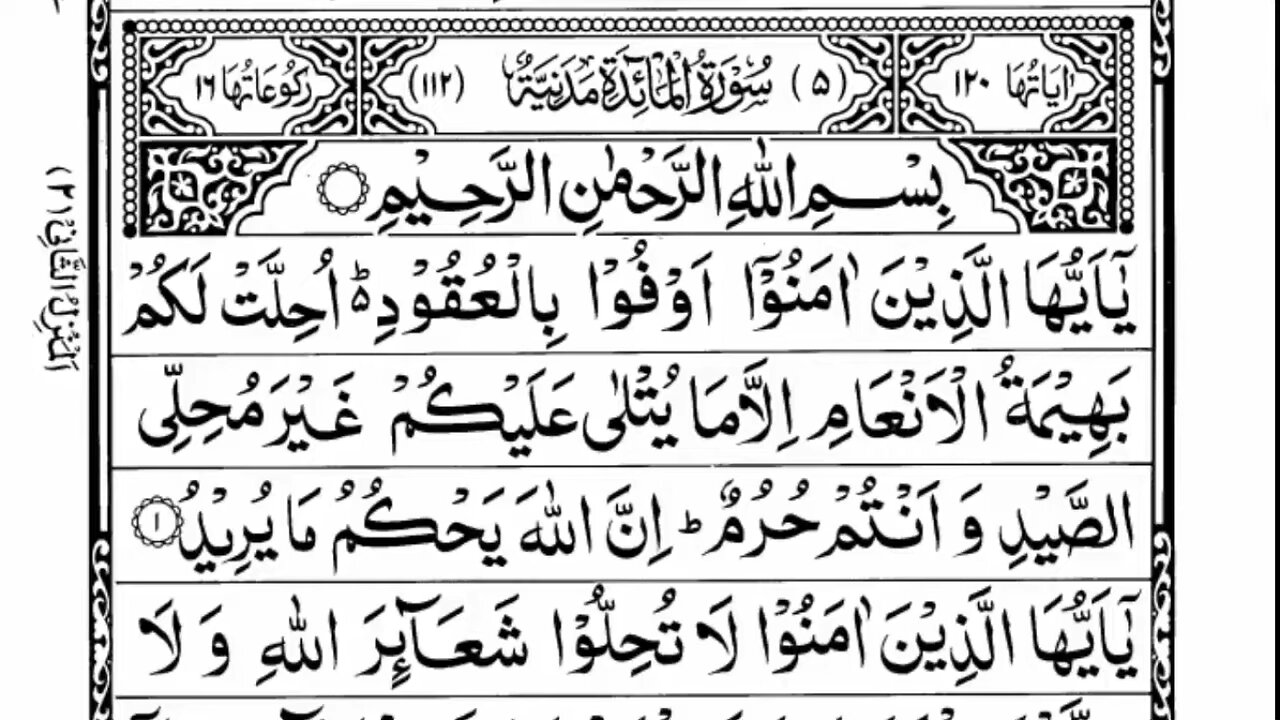 اٰيَاتُهَا ١٢٠ (٥) سُوْرَةُ الْمَآئِدَةِ مَدَنِيَّةٌ (١١٢) رُكُوْعَاتُهَا ١٦
بِسْمِ اللّٰهِ الرَّحْمٰنِ الرَّحِيْمِ
يٰۤاَيُّهَا الَّذِيْنَ اٰمَنُوْۤا اَوْفُوْا بِالْعُقُوْدِ ۵ؕ اُحِلَّتْ لَكُمْ
بَهِيْمَةُ الْاَنْعَامِ اِلَّا مَا يُتْلٰى عَلَيْكُمْ غَيْرَ مُحِلِّى
الصَّيْدِ وَ اَنْتُمْ حُرُمٌ ؕ اِنَّ اللّٰهَ يَحْكُمُ مَا يُرِيْدُ ١
يٰۤاَيُّهَا الَّذِيْنَ اٰمَنُوْا لَا تُحِلُّوْا شَعَآئِرَ اللّٰهِ وَ لَا
اَلْمَنْزِلُ الثَّانِىْ (٢)